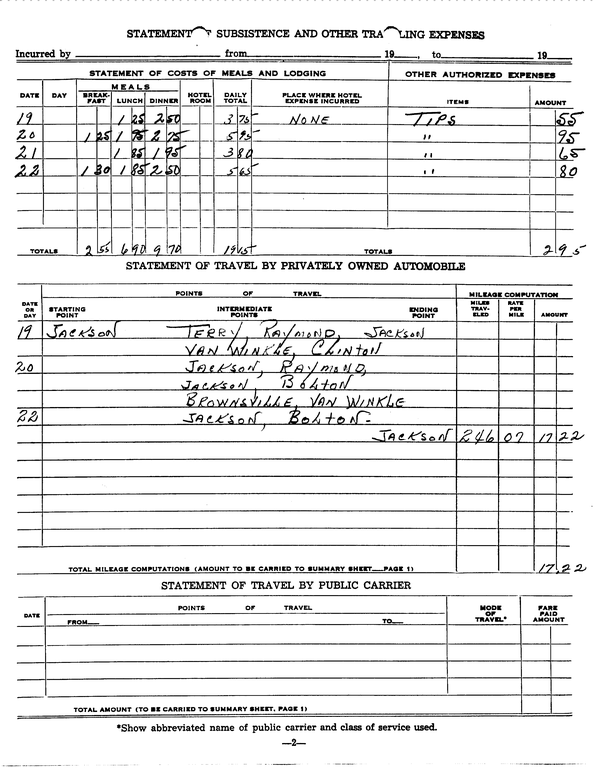 STATEMENT OF SUBSISTENCE AND OTHER TRA LING EXPENSES
Incurred by from 19 , to 19
STATEMENT OF COSTS OF MEALS AND LODGING OTHER AUTHORIZED EXPENSES
DATE DAY MEALS BREAK-FAST LUNCH DINNER HOTEL ROOM DAILY TOTAL PLACE WHERE HOTEL EXPENSE INCURRED ITEMS AMOUNT
19 1 25 2 50 3 75 NONE TIPS 55
20 1 25 1 95 2 75 5 95 " 95
21 1 85 1 95 3 80 " 65
22 1 30 1 85 2 50 5 65 " 80
TOTALS 2 55 6 90 9 70 19 15 TOTALS 2 95
STATEMENT OF TRAVEL BY PRIVATELY OWNED AUTOMOBILE
DATE OR DAY POINTS OF TRAVEL MILEAGE COMPUTATION
STARTING POINT INTERMEDIATE POINTS ENDING POINT MILES TRAV-ELED RATE PER MILE AMOUNT
19 JACKSON TERRY, RAYMOND, JACKSON
VAN WINKLE, CLINTON
20 JACKSON, RAYMOND,
JACKSON, BOLTON
BROWNSVILLE, VAN WINKLE
22 JACKSON, BOLTON-
JACKSON 246 07 17 22
TOTAL MILEAGE COMPUTATIONS (AMOUNT TO BE CARRIED TO SUMMARY SHEET PAGE 1) 17.22
STATEMENT OF TRAVEL BY PUBLIC CARRIER
DATE POINTS OF TRAVEL MODE OF TRAVEL* FARE PAID AMOUNT
FROM TO
TOTAL AMOUNT (TO BE CARRIED TO SUMMARY SHEET, PAGE 1)
*Show abbreviated name of public carrier and class of service used.
—2—